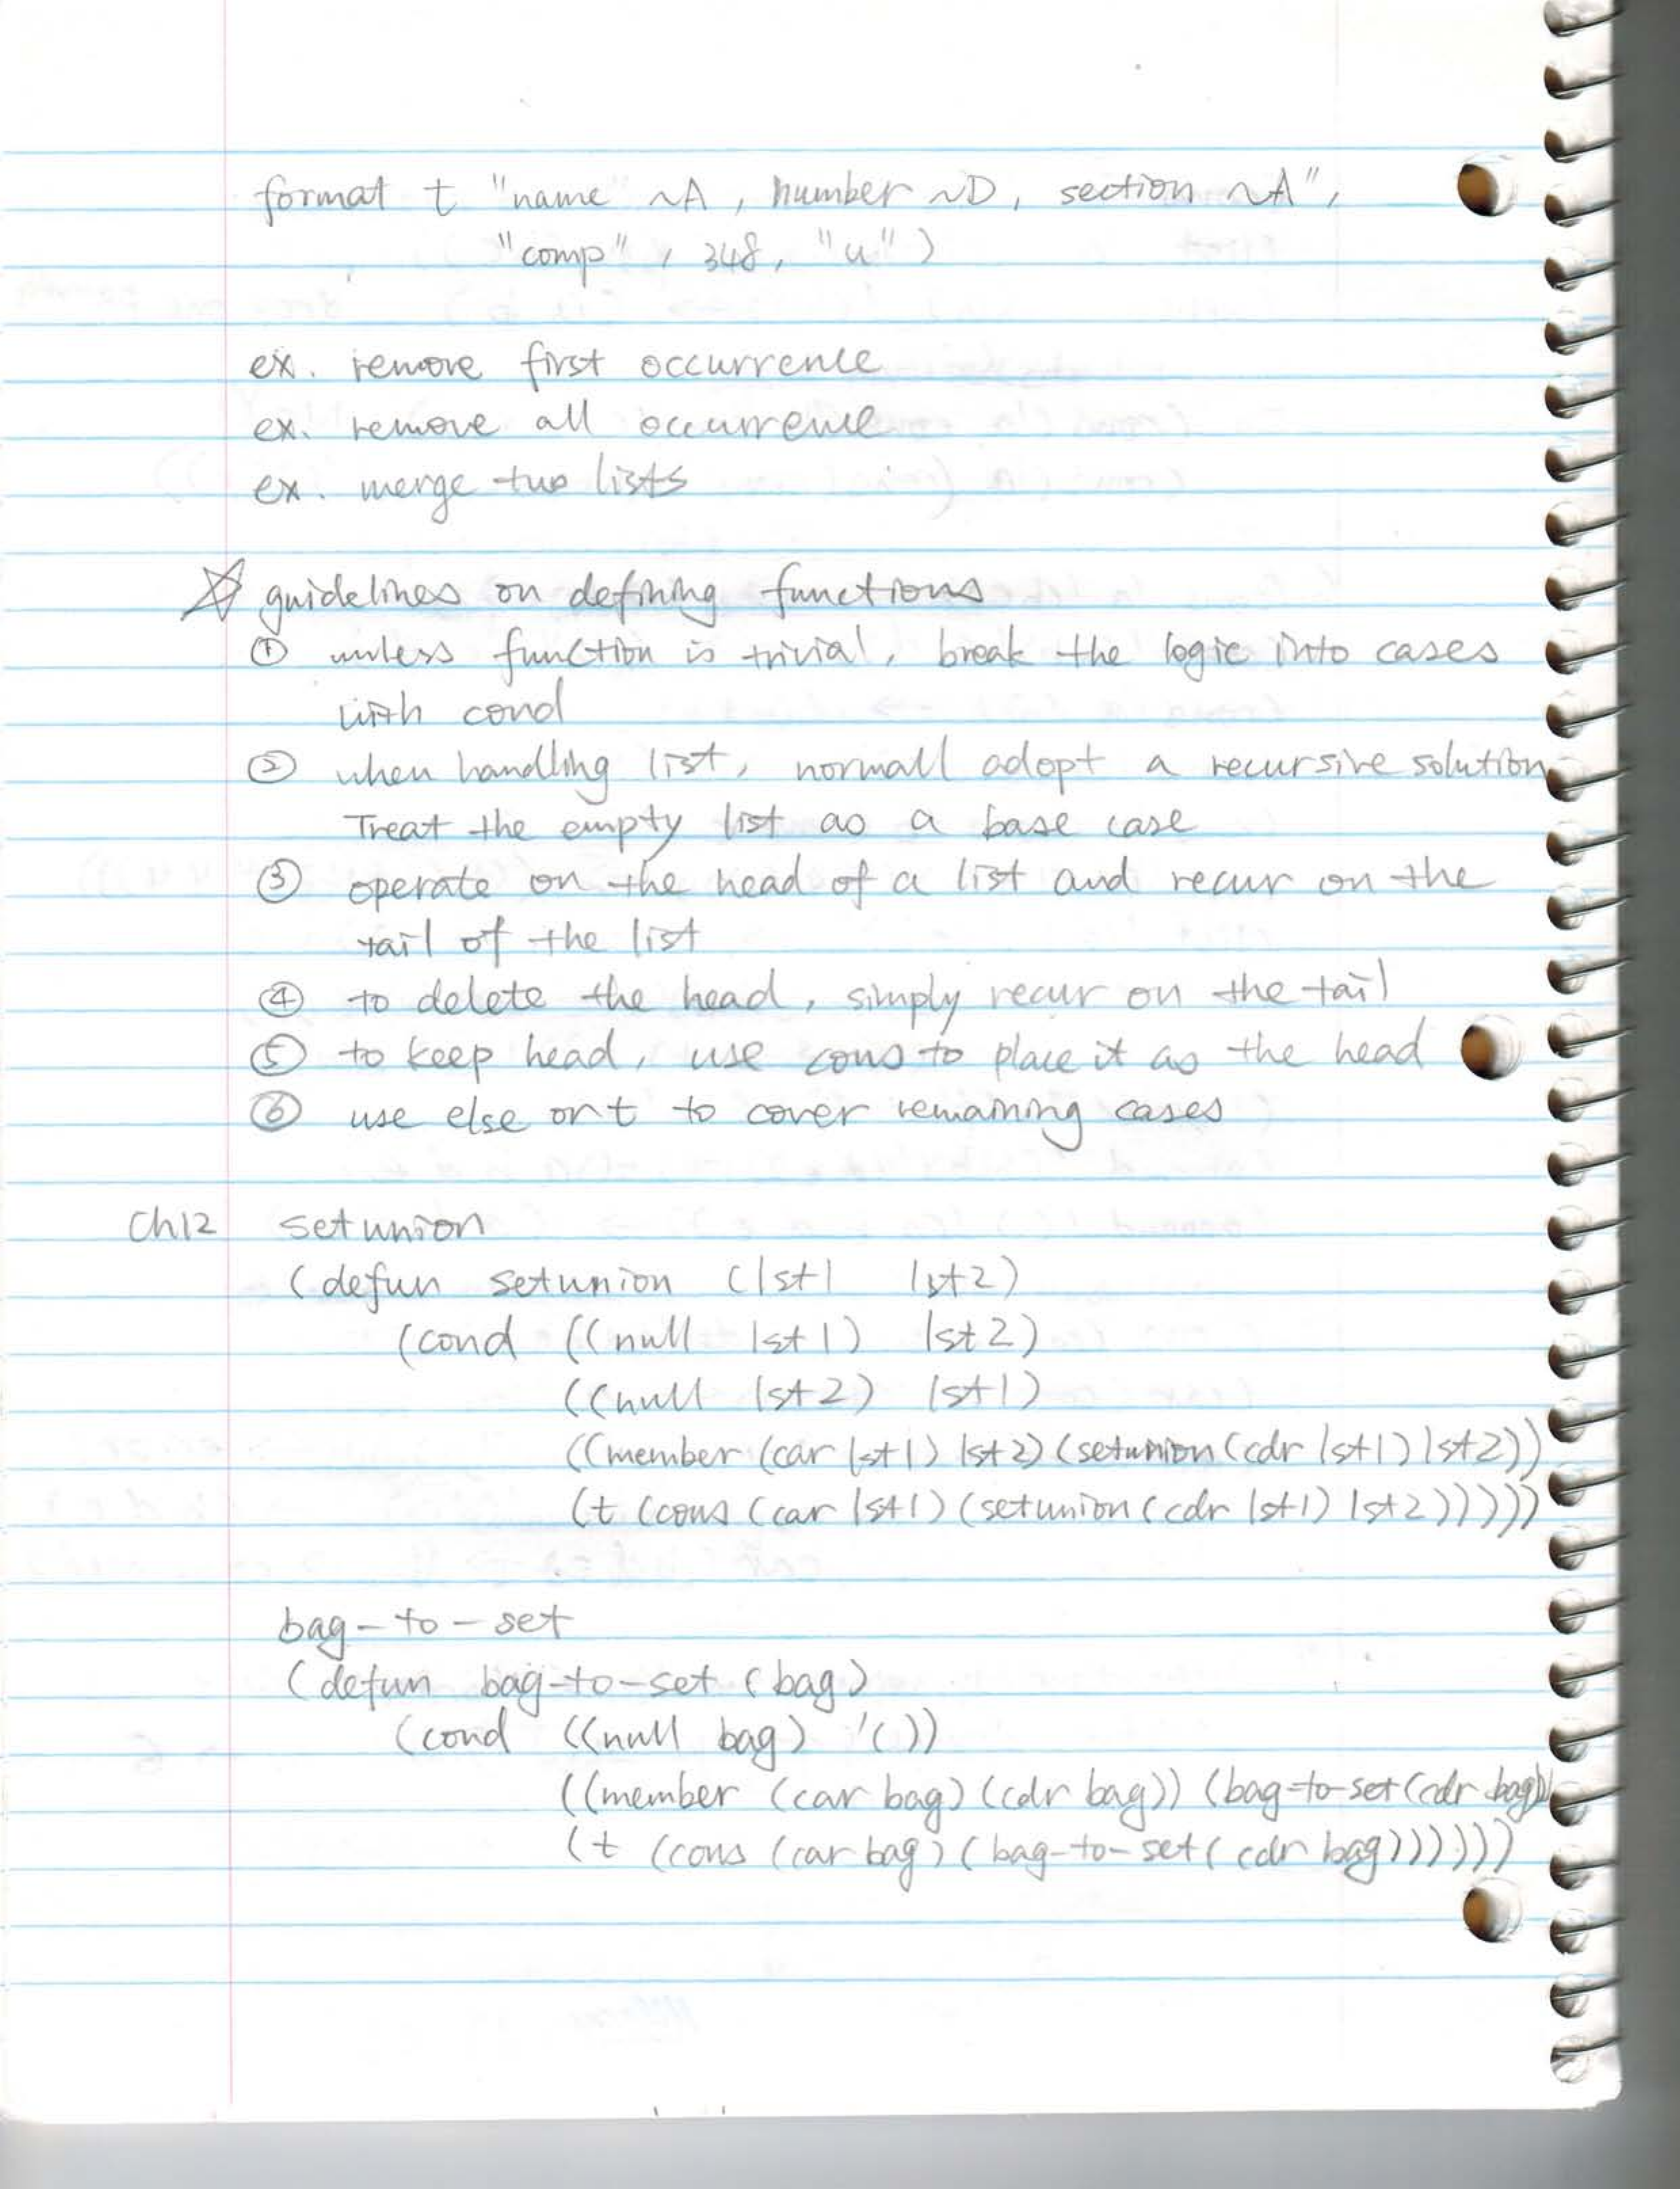 format t "name" ~A, number ~D, section ~A",
"comp", 348, "u")
ex. remove first occurrence
ex. remove all occurrence
ex. merge two lists
☆ guidelines on defining functions
① unless function is trivial, break the logic into cases
with cond
② when handling list, normall adopt a recursive solution
Treat the empty list as a base case
③ operate on the head of a list and recur on the
tail of the list
④ to delete the head, simply recur on the tail
⑤ to keep head, use cons to place it as the head
⑥ use else or t to cover remaining cases
Ch12 setunion
(defun setunion (lst1 lst2)
(cond ((null lst1) lst2)
((null lst2) lst1)
((member (car lst1) lst2) (setunion (cdr lst1) lst2))
(t (cons (car lst1) (setunion (cdr lst1) lst2)))))
bag-to-set
(defun bag-to-set (bag)
(cond ((null bag) '())
((member (car bag) (cdr bag)) (bag-to-set (cdr bag))
(t (cons (car bag) (bag-to-set (cdr bag))))))